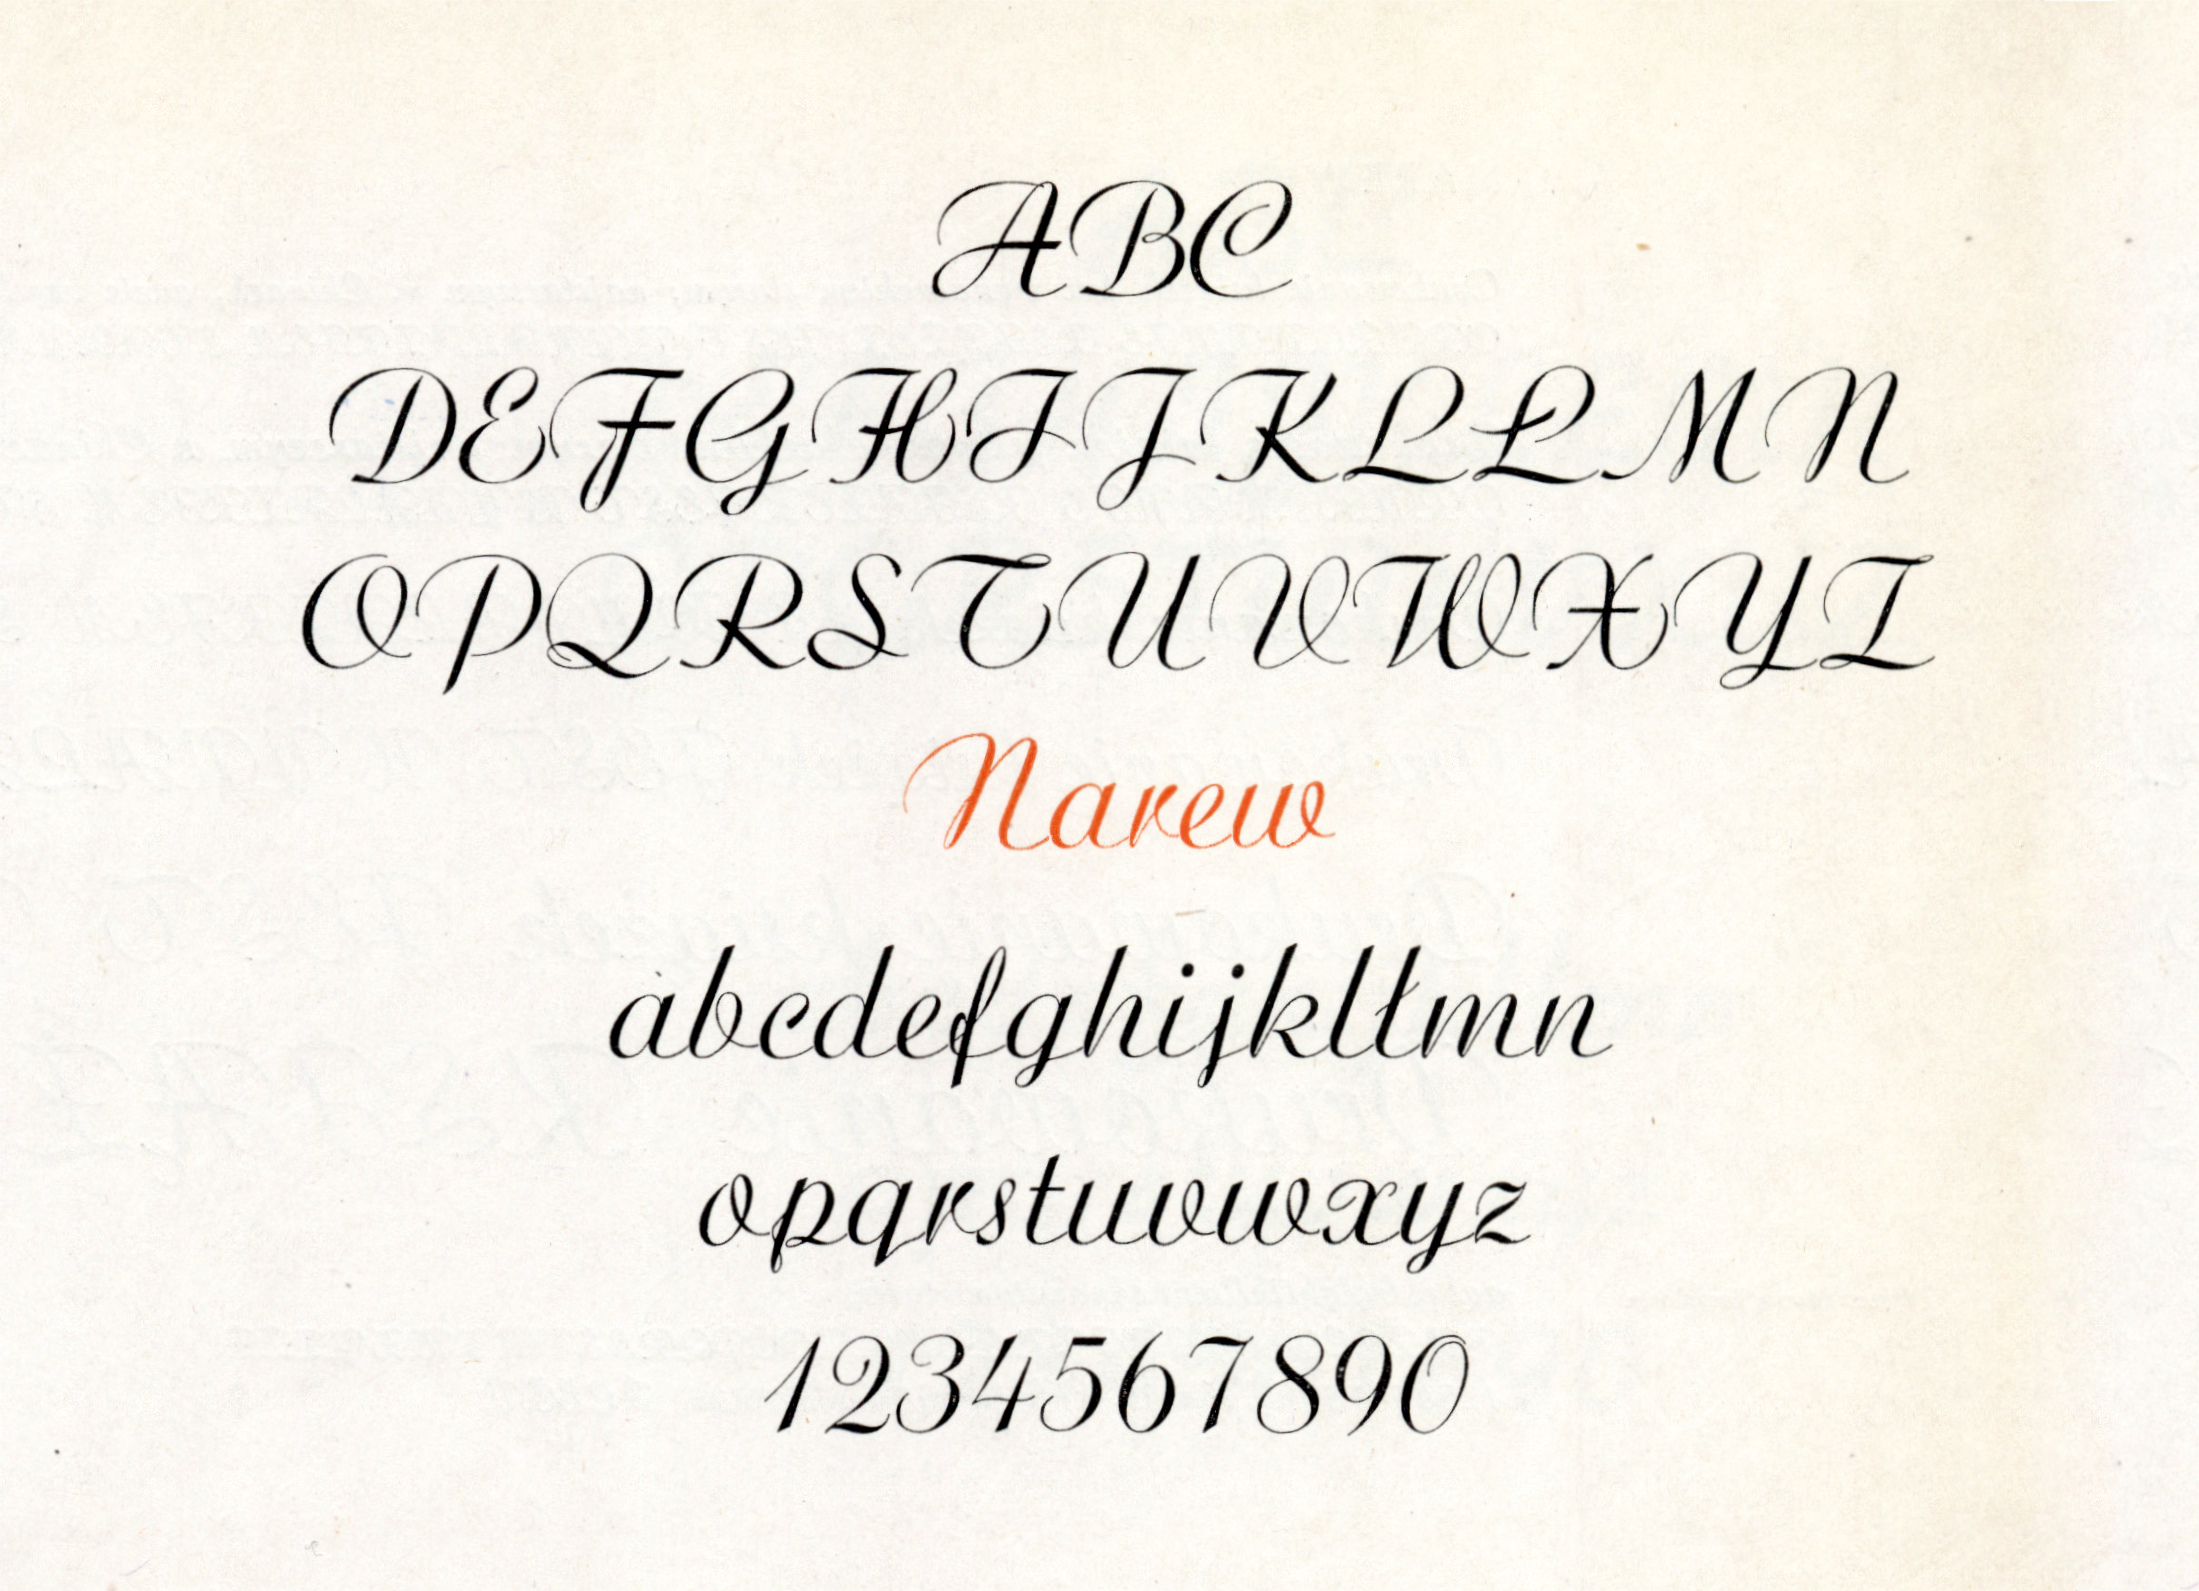 ABC
DEFGHIJKLŁMN
OPQRSTUVWXYZ
Narew
abcdefghijklłmn
opqrstuvwxyz
1234567890